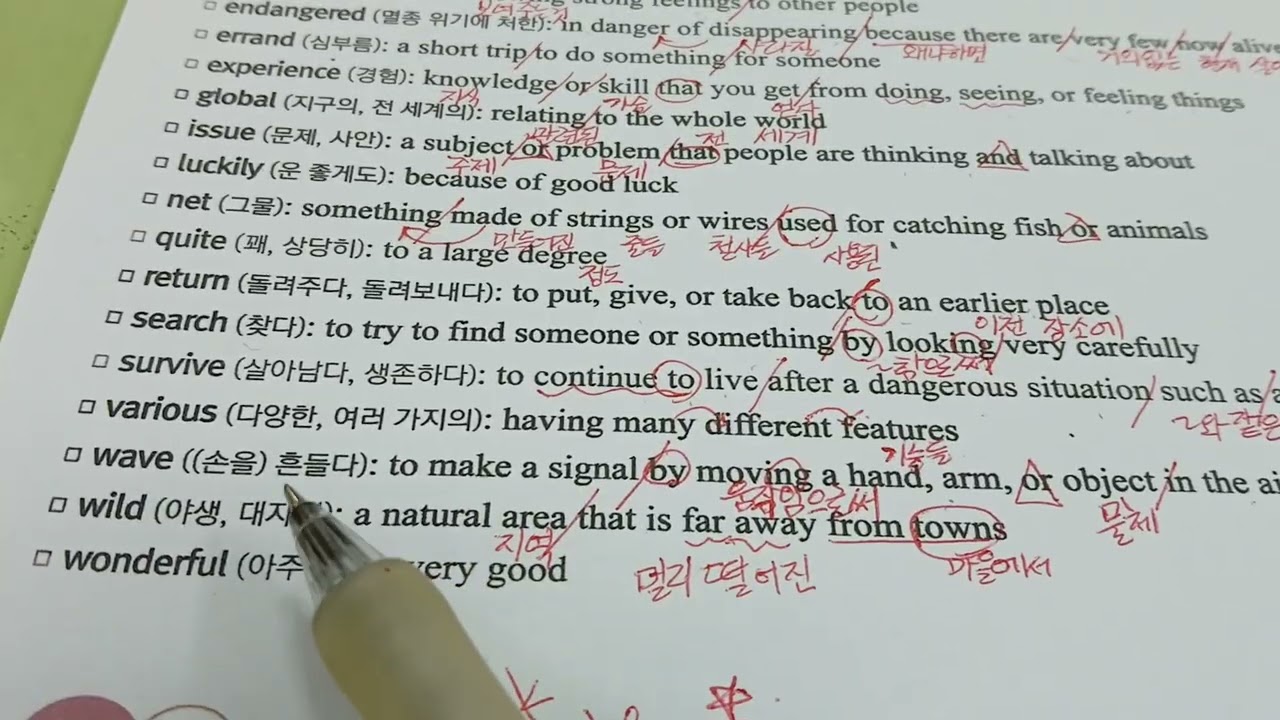 strong feelings to other people
□ endangered (멸종 위기에 처한): in danger of disappearing because there are very few now alive
사라진 왜냐하면 거의없는 현재
□ errand (심부름): a short trip to do something for someone
□ experience (경험): knowledge or skill that you get from doing, seeing, or feeling things
지식 기술
□ global (지구의, 전 세계의): relating to the whole world
관련된 전 세계
□ issue (문제, 사안): a subject or problem that people are thinking and talking about
주제 문제
□ luckily (운 좋게도): because of good luck
□ net (그물): something made of strings or wires used for catching fish or animals
만들어진 줄들 철사들 사용된
□ quite (꽤, 상당히): to a large degree
정도
□ return (돌려주다, 돌려보내다): to put, give, or take back to an earlier place
이전 장소에
□ search (찾다): to try to find someone or something by looking very carefully
□ survive (살아남다, 생존하다): to continue to live after a dangerous situation such as a
~와 같은
□ various (다양한, 여러 가지의): having many different features
기능들
□ wave ((손을) 흔들다): to make a signal by moving a hand, arm, or object in the ai
움직임으로써 물체
□ wild (야생, 대자: a natural area that is far away from towns
지역 멀리 떨어진 마을에서
□ wonderful (아주 very good